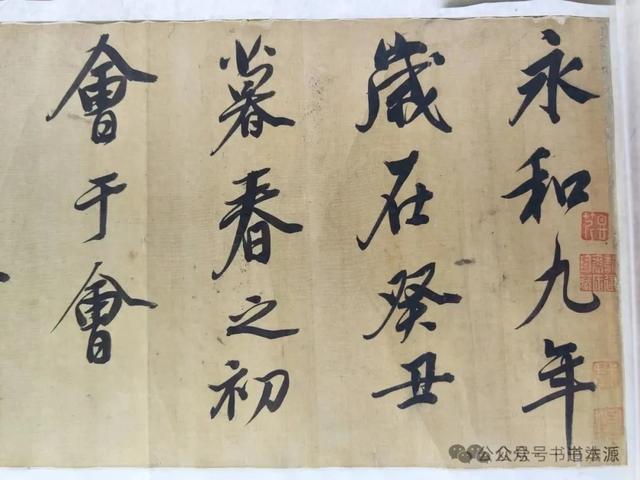 永和九年
歲在癸丑
暮春之初
會于會
公众号·书道本源